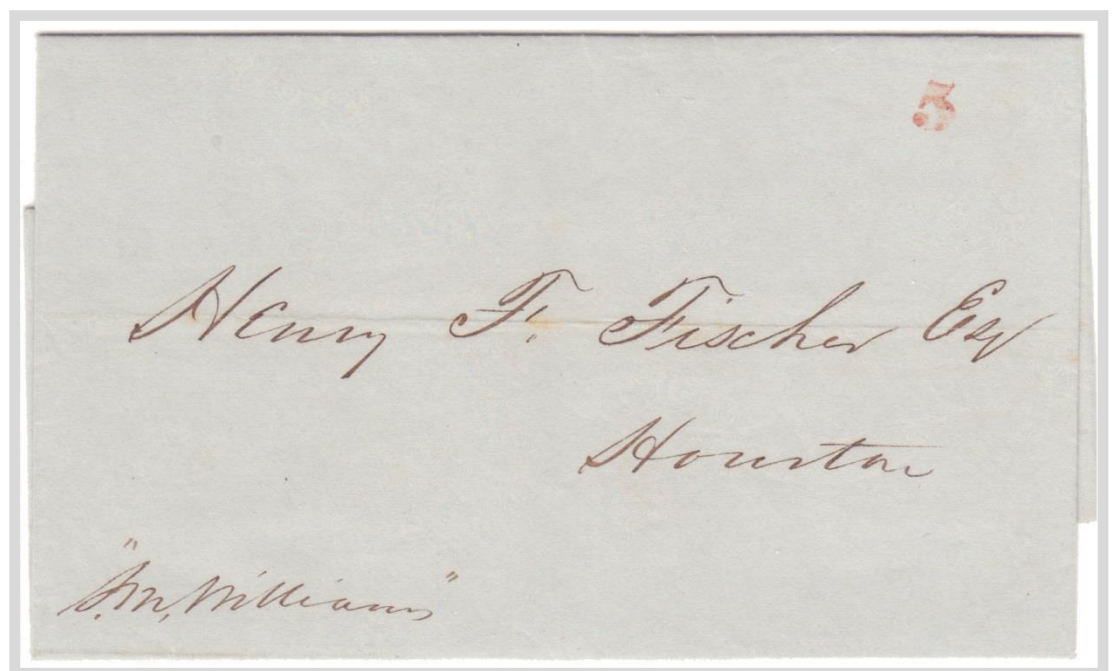 5
Henry F. Fischer Esq
Houston
"S. M. Williams"